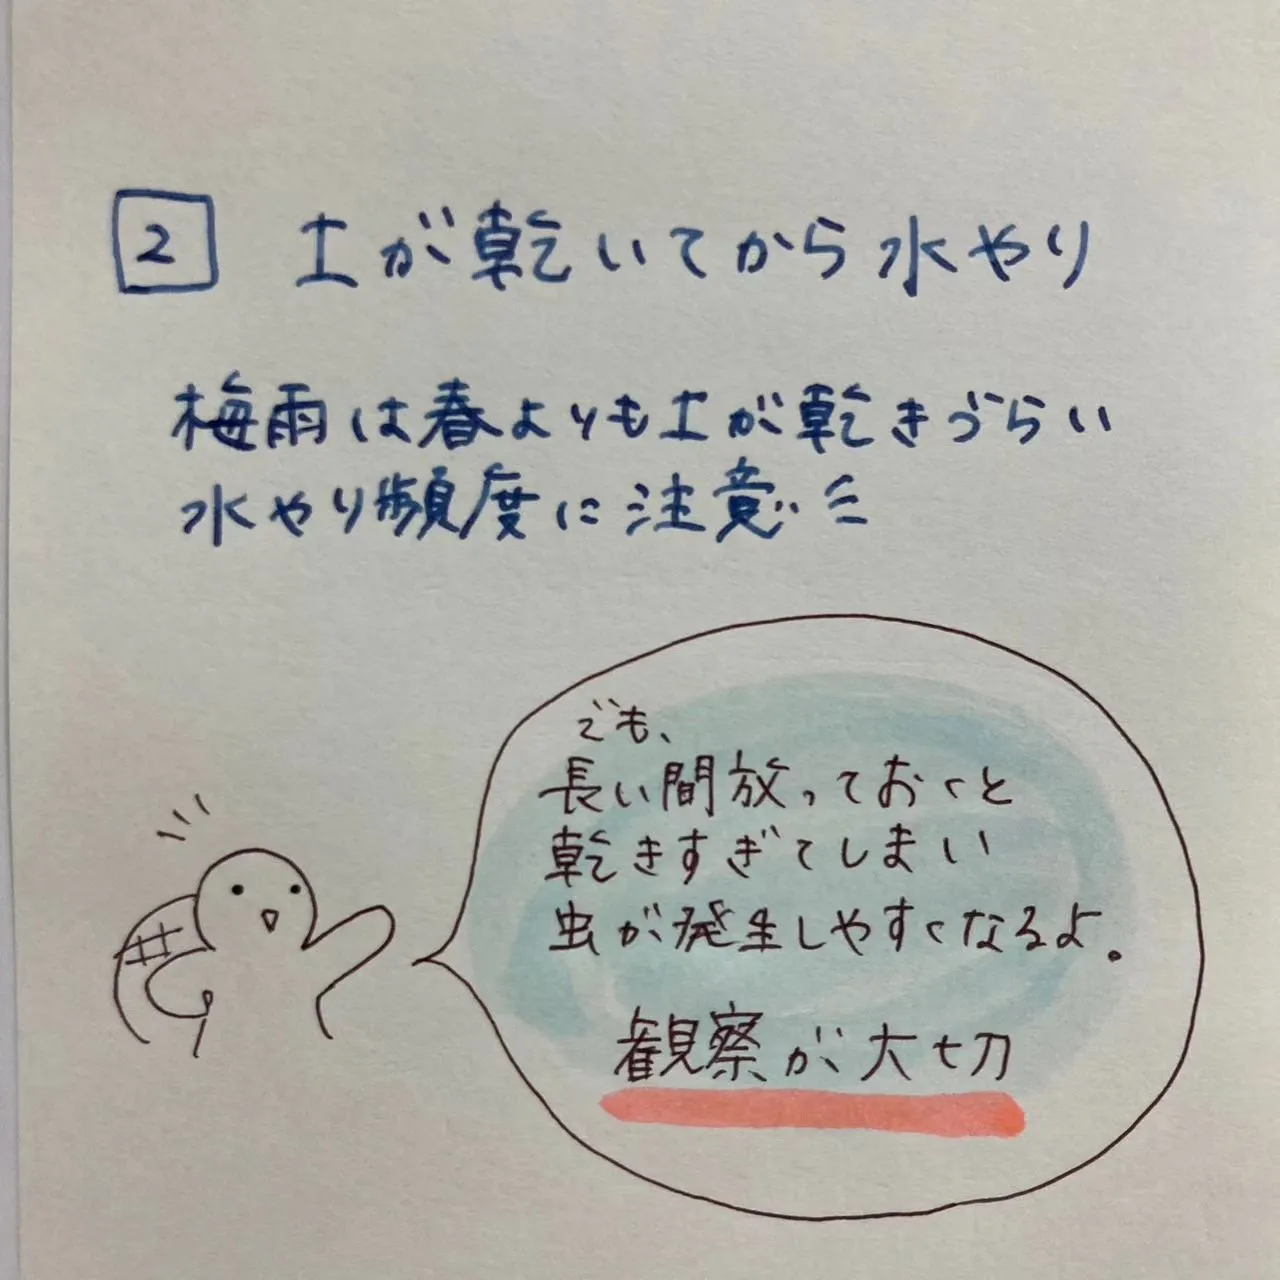 2 土が乾いてから水やり
梅雨は春よりも土が乾きづらい
水やり頻度に注意
でも、
長い間放っておくと
乾きすぎてしまい
虫が発生しやすくなるよ。
観察が大切